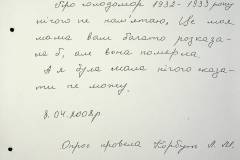 Про голодомор 1932-1933 року
нічого не пам'ятаю. Це моя
мама вам багато розказа-
ла б, ал вона померла.
А я була мала нічого каза-
ти не можу.
8.04.2008р
Опрос провела Корбут Л. М.